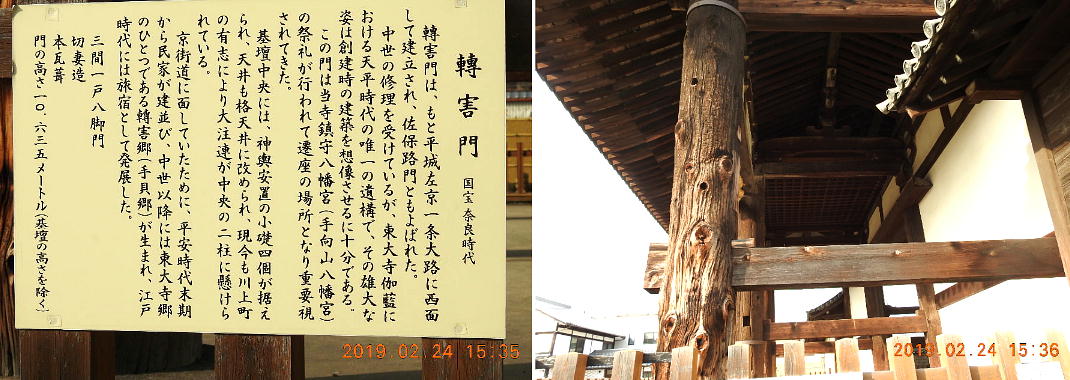 轉害門 国宝 奈良時代
轉害門は、もと平城左京一条大路に西面
して建立され、佐保路門ともよばれた。
中世の修理を受けているが、東大寺伽藍に
おける天平時代の唯一の遺構で、その雄大な
姿は創建時の建築を想像させるに十分である。
この門は当寺鎮守八幡宮(手向山八幡宮)
の祭礼が行われて遷座の場所となり重要視
されてきた。
基壇中央には、神輿安置の小礎四個が据え
られ、天井も格天井に改められ、現今も川上町
の有志により大注連が中央の二柱に懸けら
れている。
京街道に面していたために、平安時代末期
から民家が建並び、中世以降には東大寺郷
のひとつである轉害郷(手貝郷)が生まれ、江戸
時代には旅宿として発展した。
三間一戸八脚門
切妻造
本瓦葺
門の高さ一〇.六三五メートル(基壇の高さを除く)
2019.02.24 15:35
2019.02.24 15:36